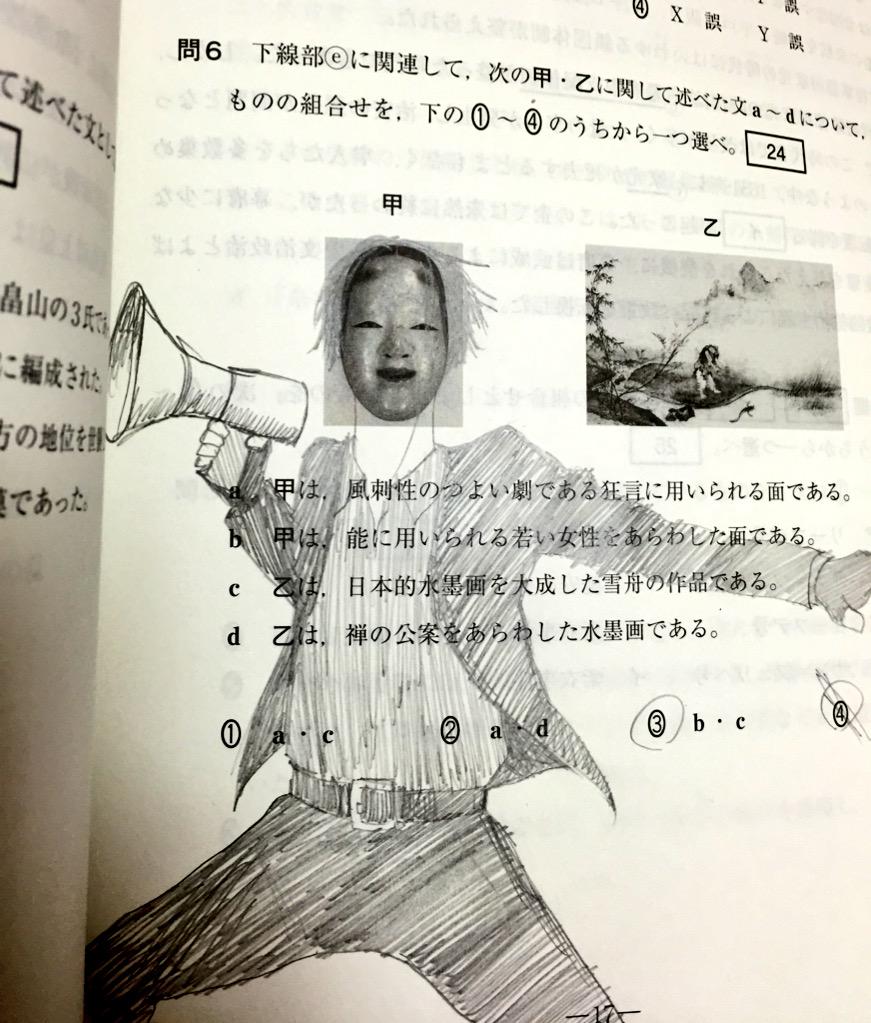 ④ X 誤 Y 誤
て述べた文とし
問6 下線部ⓔに関連して，次の甲・乙に関して述べた文a～dについて，
ものの組合せを，下の①～④のうちから一つ選べ。 24
甲
乙
畠山の3氏で
に編成された。
方の地位を世
であった。
a 甲は，風刺性のつよい劇である狂言に用いられる面である。
b 甲は，能に用いられる若い女性をあらわした面である。
c 乙は，日本的水墨画を大成した雪舟の作品である。
d 乙は，禅の公案をあらわした水墨画である。
① a・c ② a・d ③ b・c ④
—17—